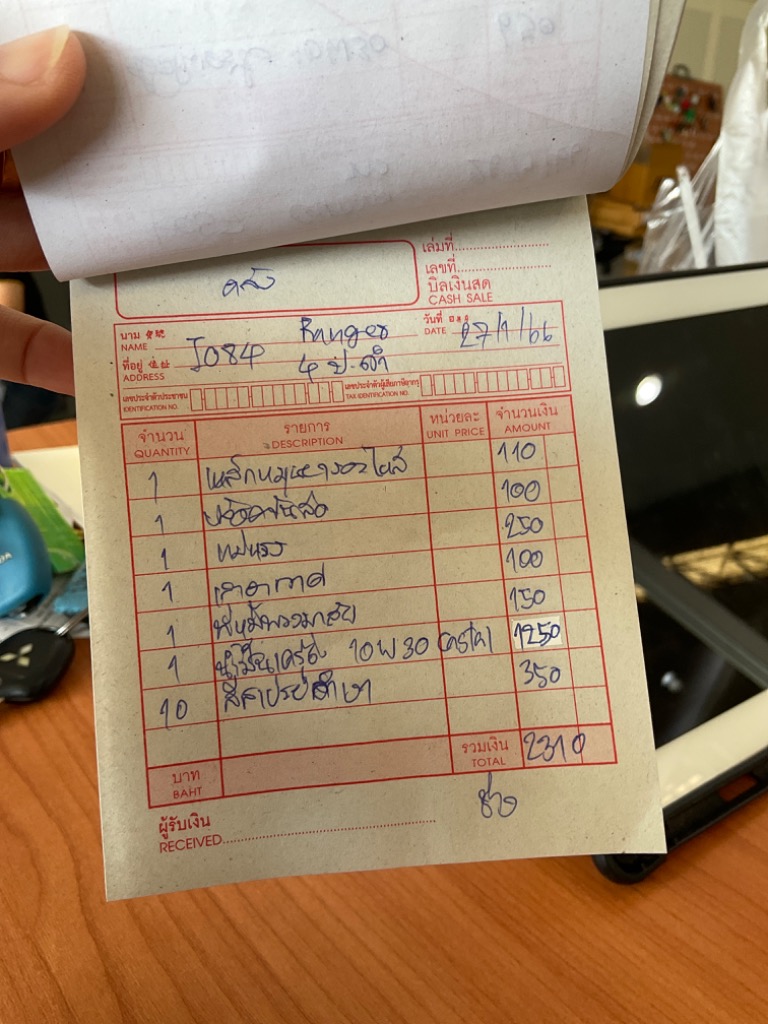 เล่มที่
เลขที่
บิลเงินสด
CASH SALE
นาม
NAME
J084
Ranger
วันที่
DATE
27/1/66
ที่อยู่
ADDRESS
4 ป.ดำ
เลขประจำตัวประชาชน
IDENTIFICATION NO.
เลขประจำตัวผู้เสียภาษีอากร
TAX IDENTIFICATION NO.
จำนวน รายการ หน่วยละ จำนวนเงิน
QUANTITY DESCRIPTION UNIT PRICE AMOUNT
1 110
1 100
1 แม่แรง 250
1 เสาอากาศ 100
1 ที่หุ้มพวงมาลัย 150
1 น้ำมันเครื่อง 10W30 1250
10 สีสเปรย์ดำเงา 350
บาท
BAHT
รวมเงิน
TOTAL
2310
ผู้รับเงิน
RECEIVED
ช่าง